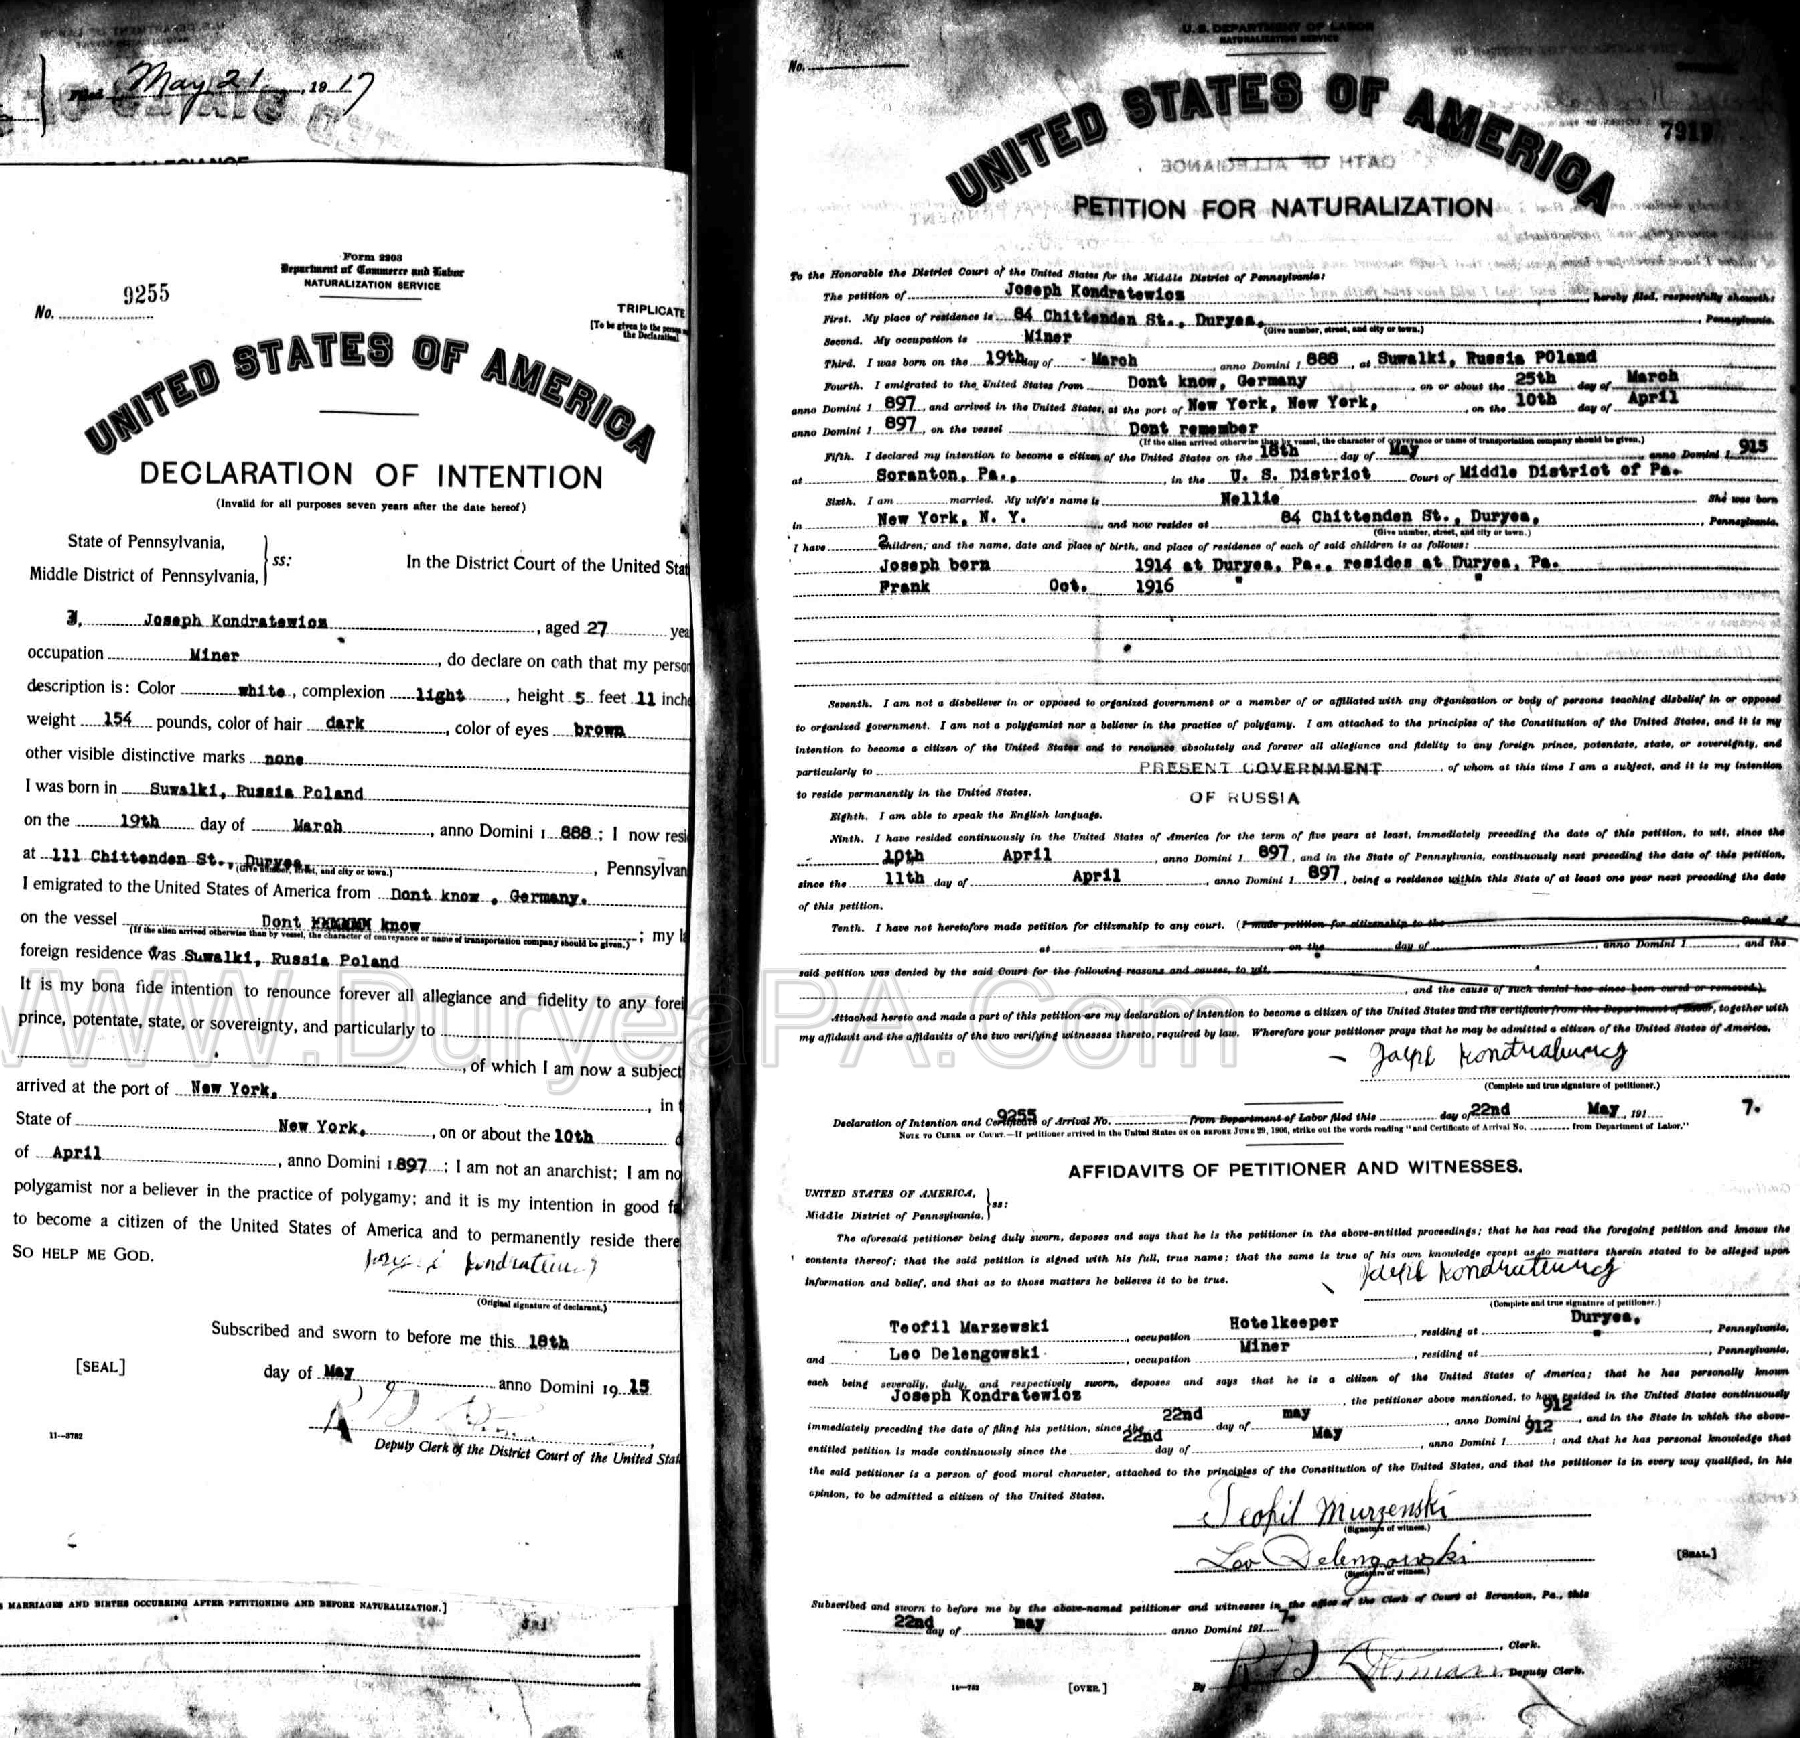 Filed May 21, 1917
Form 2203
Department of Commerce and Labor
NATURALIZATION SERVICE
No. 9255
TRIPLICATE
[To be given to the person
the Declaration]
UNITED STATES OF AMERICA
DECLARATION OF INTENTION
(Invalid for all purposes seven years after the date hereof)
State of Pennsylvania,
Middle District of Pennsylvania,
ss:
In the District Court of the United Stat
I, Joseph Kondratewicz, aged 27 yea
occupation Miner, do declare on oath that my person
description is: Color white, complexion light, height 5 feet 11 inche
weight 154 pounds, color of hair dark, color of eyes brown
other visible distinctive marks none
I was born in Suwalki, Russia Poland
on the 19th day of March, anno Domini 1 888; I now resi
at 111 Chittenden St., Duryea, Pennsylvan
(Give number, street, and city or town.)
I emigrated to the United States of America from Dont know, Germany.
on the vessel Dont XXXXXX know; my l
(If the alien arrived otherwise than by vessel, the character of conveyance or name of transportation company should be given.)
foreign residence was Suwalki, Russia Poland
It is my bona fide intention to renounce forever all allegiance and fidelity to any forei
prince, potentate, state, or sovereignty, and particularly to
, of which I am now a subject
arrived at the port of New York, in t
State of New York, on or about the 10th d
of April, anno Domini 1 897; I am not an anarchist; I am no
polygamist nor a believer in the practice of polygamy; and it is my intention in good fa
to become a citizen of the United States of America and to permanently reside there
SO HELP ME GOD.
Kondratewicz
(Original signature of declarant.)
Subscribed and sworn to before me this 18th
[SEAL] day of May anno Domini 19 15
11—3782
Deputy Clerk of the District Court of the United Stat
MARRIAGES AND BIRTHS OCCURRING AFTER PETITIONING AND BEFORE NATURALIZATION.]
U. S. DEPARTMENT OF LABOR
NATURALIZATION SERVICE
No.
7919
UNITED STATES OF AMERICA
OATH OF ALLEGIANCE
PETITION FOR NATURALIZATION
To the Honorable the District Court of the United States for the Middle District of Pennsylvania:
The petition of Joseph Kondratewicz, hereby filed, respectfully showeth:
First. My place of residence is 84 Chittenden St., Duryea, Pennsylvania.
(Give number, street, and city or town.)
Second. My occupation is Miner
Third. I was born on the 19th day of March, anno Domini 1 888, at Suwalki, Russia POland
Fourth. I emigrated to the United States from Dont know, Germany, on or about the 25th day of March
anno Domini 1 897, and arrived in the United States, at the port of New York, New York, on the 10th day of April
anno Domini 1 897, on the vessel Dont remember
(If the alien arrived otherwise than by vessel, the character of conveyance or name of transportation company should be given.)
Fifth. I declared my intention to become a citizen of the United States on the 18th day of May anno Domini 1 915
at Scranton, Pa., in the U. S. District Court of Middle District of Pa.
Sixth. I am married. My wife's name is Nellie She was born
in New York, N. Y., and now resides at 84 Chittenden St., Duryea, Pennsylvania.
(Give number, street, and city or town.)
I have 2 children, and the name, date and place of birth, and place of residence of each of said children is as follows:
Joseph born 1914 at Duryea, Pa., resides at Duryea, Pa.
Frank Oct. 1916 " "
Seventh. I am not a disbeliever in or opposed to organized government or a member of or affiliated with any organization or body of persons teaching disbelief in or opposed
to organized government. I am not a polygamist nor a believer in the practice of polygamy. I am attached to the principles of the Constitution of the United States, and it is my
intention to become a citizen of the United States and to renounce absolutely and forever all allegiance and fidelity to any foreign prince, potentate, state, or sovereignty, and
particularly to PRESENT GOVERNMENT, of whom at this time I am a subject, and it is my intention
to reside permanently in the United States. OF RUSSIA
Eighth. I am able to speak the English language.
Ninth. I have resided continuously in the United States of America for the term of five years at least, immediately preceding the date of this petition, to wit, since the
10th April, anno Domini 1 897, and in the State of Pennsylvania, continuously next preceding the date of this petition,
since the 11th day of April, anno Domini 1 897, being a residence within this State of at least one year next preceding the date
of this petition.
Tenth. I have not heretofore made petition for citizenship to any court. (I made petition for citizenship to the Court of
at on the day of, anno Domini 1, and the
said petition was denied by the said Court for the following reasons and causes, to wit,
, and the cause of such denial has since been cured or removed.)
Attached hereto and made a part of this petition are my declaration of intention to become a citizen of the United States and the certificate from the Department of Labor, together with
my affidavit and the affidavits of the two verifying witnesses thereto, required by law. Wherefore your petitioner prays that he may be admitted a citizen of the United States of America.
(Complete and true signature of petitioner.)
Declaration of Intention and Certificate of Arrival No. 9255 from Department of Labor filed this 22nd day of May, 191 7.
NOTE TO CLERK OF COURT.—If petitioner arrived in the United States ON OR BEFORE JUNE 29, 1906, strike out the words reading "and Certificate of Arrival No. from Department of Labor."
AFFIDAVITS OF PETITIONER AND WITNESSES.
UNITED STATES OF AMERICA,
Middle District of Pennsylvania,
ss:
The aforesaid petitioner being duly sworn, deposes and says that he is the petitioner in the above-entitled proceedings; that he has read the foregoing petition and knows the
contents thereof; that the said petition is signed with his full, true name; that the same is true of his own knowledge except as to matters therein stated to be alleged upon
information and belief, and that as to those matters he believes it to be true.
Joseph Kondratewicz
(Complete and true signature of petitioner.)
Teofil Marzewski, occupation Hotelkeeper, residing at Duryea, Pennsylvania,
and Leo Delengowski, occupation Miner, residing at ", Pennsylvania,
each being severally, duly, and respectively sworn, deposes and says that he is a citizen of the United States of America; that he has personally known
Joseph Kondratewicz, the petitioner above mentioned, to have resided in the United States continuously
immediately preceding the date of filing his petition, since the 22nd day of may, anno Domini 1 912, and in the State in which the above-
entitled petition is made continuously since the 22nd day of May, anno Domini 1 912; and that he has personal knowledge that
the said petitioner is a person of good moral character, attached to the principles of the Constitution of the United States, and that the petitioner is in every way qualified, in his
opinion, to be admitted a citizen of the United States.
Teofil Murzenski
(Signature of witness.)
Leo Delengowski
(Signature of witness.)
[SEAL.]
Subscribed and sworn to before me by the above-named petitioner and witnesses in the office of the Clerk of Court at Scranton, Pa., this
22nd day of may anno Domini 191 7.
, Clerk.
By, Deputy Clerk.
11—782
[OVER.]
WWW.DuryeaPA.Com